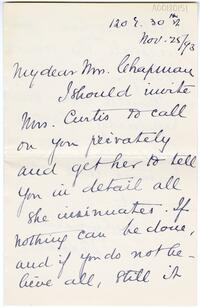 A00130151
120 E. 30th St
Nov. 25/93
My dear Mrs. Chapman
I should invite
Mrs. Curtis to call
on you privately
and get her to tell
you in detail all
she insinuates. If
nothing can be done,
and if you do not be-
lieve all, still it